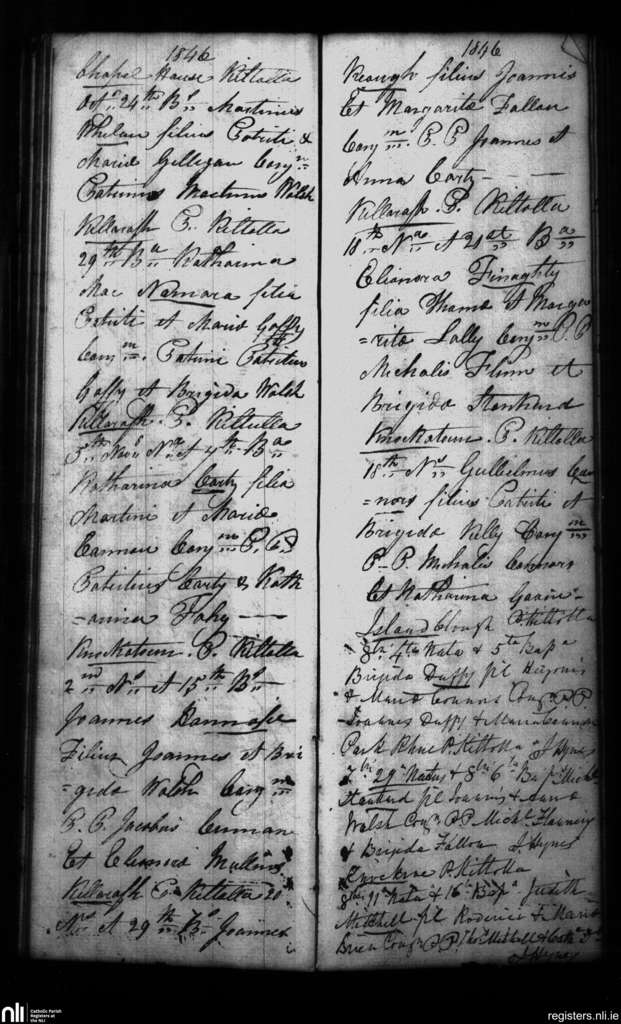 1846
Chapel House Kiltolla
24th Bs Martinus
Whelan filius Patritii &
Mariæ Gilligan Conjm
Patrinus Martinus Walsh
Killarash P. Kiltolla
29th Ba Katharina
Mac Namara filia
Patritii et Maria Goffy
Conjm. Patrini Patritius
Goffy et Brigida Walsh
Killarash. P. Kiltolla
5th Na et 7th Ba
Katharina Carty filia
Martini et Mariæ
Cannon Conjm P. P.
Patritius Carty & Kath
=arina Fahy
Knockatown. P. Kiltolla
2nd Ns et 15th Bs
Joannes
Filius Joannes et Bri
=gida Walsh Conjm
P. P. Jacobus
Et Mullins
Killarash P. Kiltolla 20
Ns et 29th Bs Joannes
1846
Keough filius Joannis
Et Margaritæ Fallon
Conjm. P. P. Joannes et
Anna Carty
Killarash P. Kiltolla
18th Na et 21st Ba
Elianora Finaghty
filia Thomæ et Marga
=ritæ Lally Conjm P. P
Michalis Flinn et
Brigida
Knockatown. P. Kiltolla
18th Ns Gullielmus Con
=nors filius Patritii et
Brigida Kelly Conjm
P. P. Michalis Connors
Et Katharina
Island P Kiltolla
8 4th Nata & 5th Bapa
Brigida Duffy fil
& Maria Conjm P.P
Joannes Duffy & Maria
Park P Kiltolla J Hynes
29th Natus & 8 6th Bap Michl
fil Joannis &
Walsh Conj P.P Michl Flannery
& Brigida Fallon J Hynes
P Kiltolla
8 11th Nata & 16th Bapa Judith
Mitchell fil Roderici & Maria
Brien Conj P.P. Thos Mitchell &
J Hynes
nli
Catholic Parish
Registers at
the NLI
registers.nli.ie